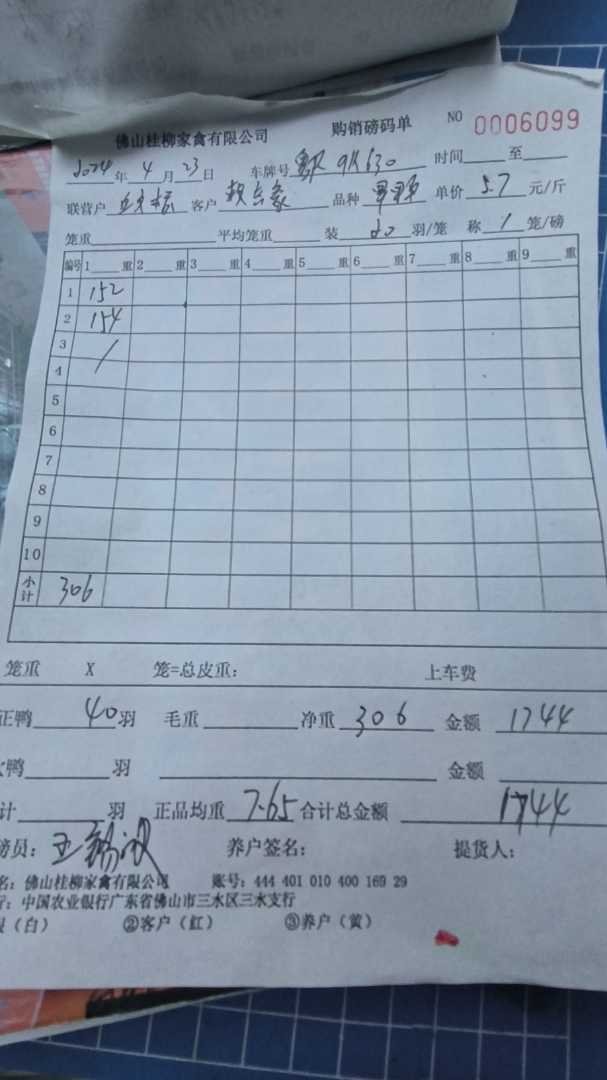 佛山桂柳家禽有限公司 购销磅码单 NO 0006099
2024年4月23日 车牌号 9K630 时间 至
联营户 客户 品种 单价5.7元/斤
笼重 平均笼重 装20羽/笼 称1笼/磅
编号 1 重 2 重 3 重 4 重 5 重 6 重 7 重 8 重 9 重
1 152
2 154
3 /
4
5
6
7
8
9
10
小计 306
笼重 X 笼=总皮重: 上车费
正鸭40羽 毛重 净重306 金额1744
鸭 羽 金额
计 羽 正品均重7.65 合计总金额1744
磅员: 养户签名: 提货人:
名: 佛山桂柳家禽有限公司 账号: 444 401 010 400 169 29
行: 中国农业银行广东省佛山市三水区三水支行
(白) ②客户(红) ③养户(黄)